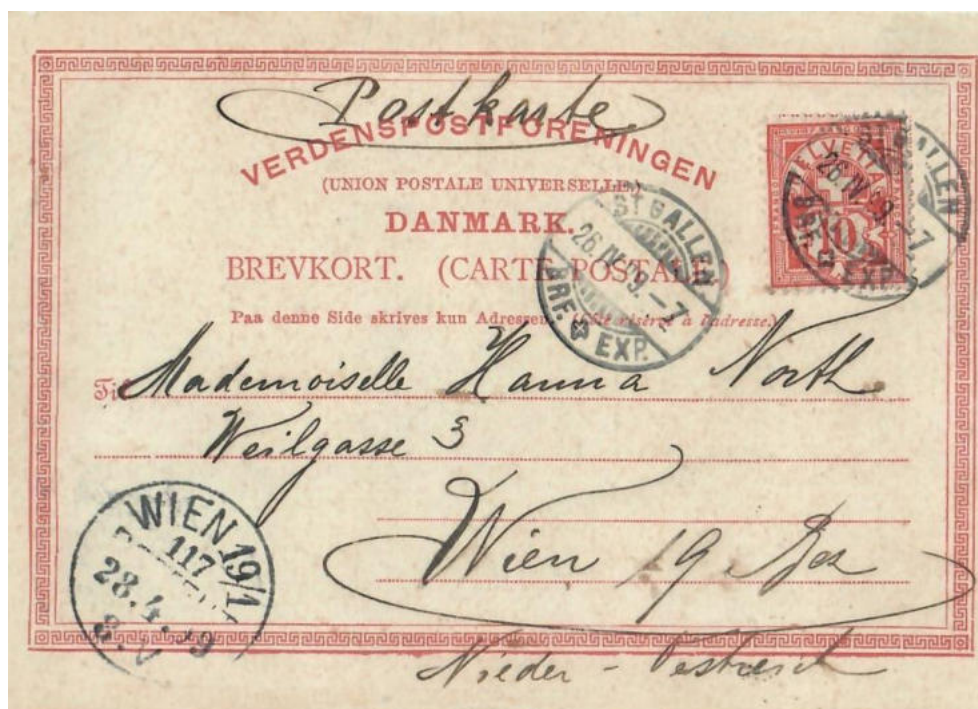 Postkarte
VERDENSPOSTFORENINGEN
(UNION POSTALE UNIVERSELLE)
DANMARK.
BREVKORT. (CARTE POSTALE)
Paa denne Side skrives kun Adressen. (Côté réservé à l'adresse.)
HELVETIA
10
ST. GALLEN
26.IV.99.-7
BRF. EXP.
ST. GALLEN
26.IV.99.-7
BRF. EXP.
Til Mademoiselle Hanna North
Weilgasse 3
Wien 19 Bez
Nieder-Oestreich
WIEN 19/1
117
28.4.99
8.V